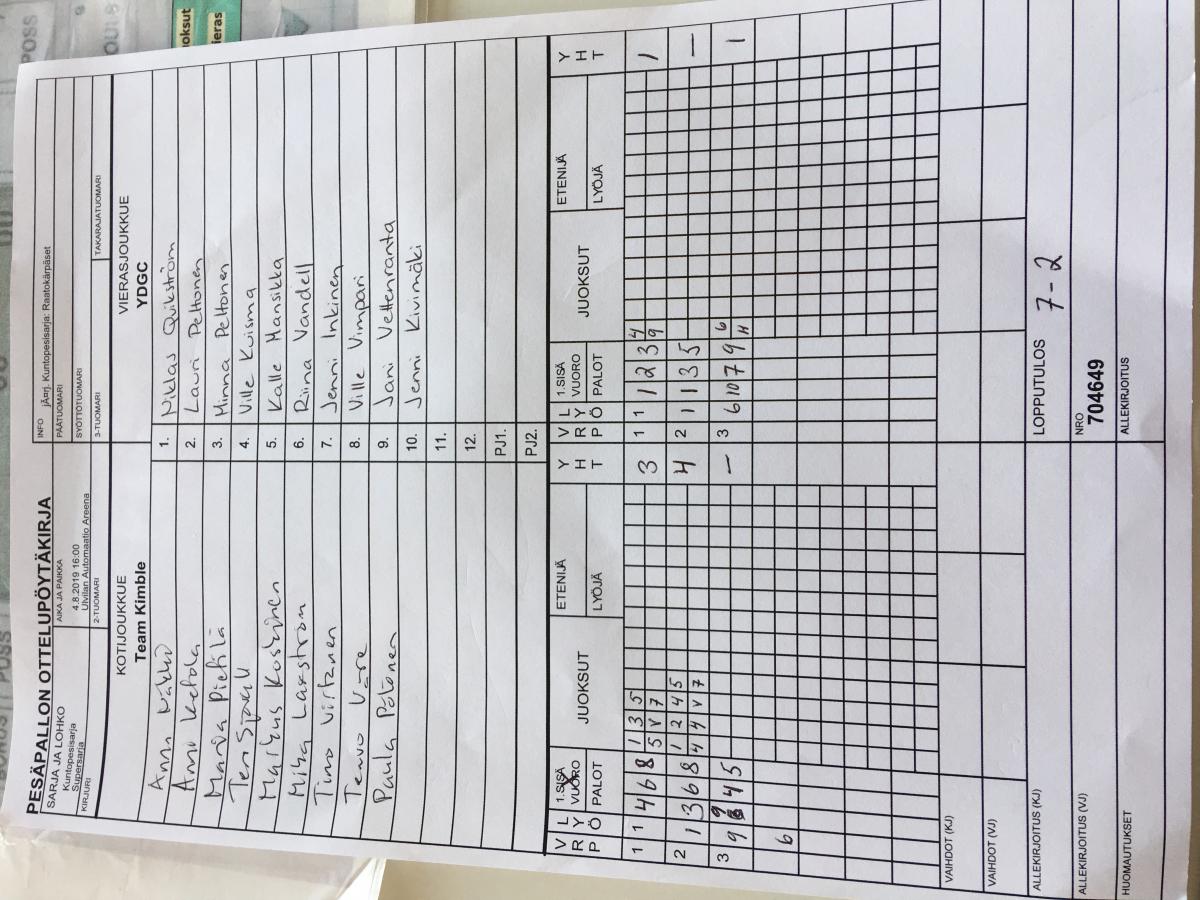 PESÄPALLON OTTELUPÖYTÄKIRJA
SARJA JA LOHKO
Kuntopesisarja
Supersarja
AIKA JA PAIKKA
4.8.2019 16:00
Ulvilan Automaatio Areena
INFO jÃ¤rj. Kuntopesisarja: Raatokärpäset
PÄÄTUOMARI
SYÖTTÖTUOMARI
KIRJURI
2-TUOMARI
3-TUOMARI
TAKARAJATUOMARI
KOTIJOUKKUE
Team Kimble
VIERASJOUKKUE
YDGC
1. Niklas Quikström
Anu Ketola 2. Lauri Peltonen
3. Minna Peltonen
4. Ville Kuisma
Markus Koskinen 5. Kalle Mansikka
Mika Laxström 6. Riina Vandell
Timo Virtanen 7. Jenni Inkinen
Teuvo 8. Ville Vimpari
Paula 9. Jani Vettenranta
10. Jenni Kivimäki
11.
12.
PJ1.
PJ2.
VRP LYÖ 1.SISÄ VUORO PALOT JUOKSUT ETENIJÄ LYÖJÄ YHT
VRP LYÖ 1.SISÄ VUORO PALOT JUOKSUT ETENIJÄ LYÖJÄ YHT
1 1 4 6 8 1 3 5 3 1 1 1 2 3 4 1
5 V 7 9
2 1 3 6 8 1 2 4 5 4 2 1 1 3 5 –
4 4 V 7
3 9 4 5 – 3 6 10 7 9 6 1
H
6
VAIHDOT (KJ)
VAIHDOT (VJ)
ALLEKIRJOITUS (KJ)
LOPPUTULOS 7-2
ALLEKIRJOITUS (VJ)
NRO
704649
HUOMAUTUKSET
ALLEKIRJOITUS